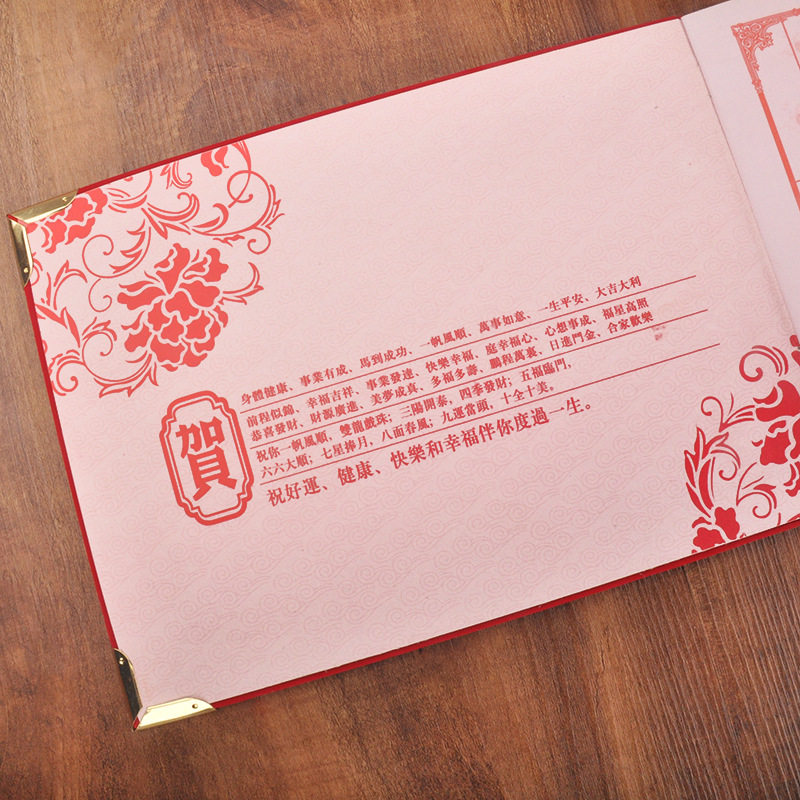 賀
身體健康、事業有成、馬到成功、一帆風順、萬事如意、一生平安、大吉大利
前程似錦、幸福吉祥、事業發達、快樂幸福、庭幸福心、心想事成、福星高照
恭喜發財、財源廣進、美夢成真、多福多壽、鵬程萬裏、日進鬥金、合家歡樂
祝你一帆風順，雙龍戲珠；三陽開泰，四季發財；五福臨門，
六六大順；七星捧月，八面春風；九運當頭，十全十美。
祝好運、健康、快樂和幸福伴你度過一生。